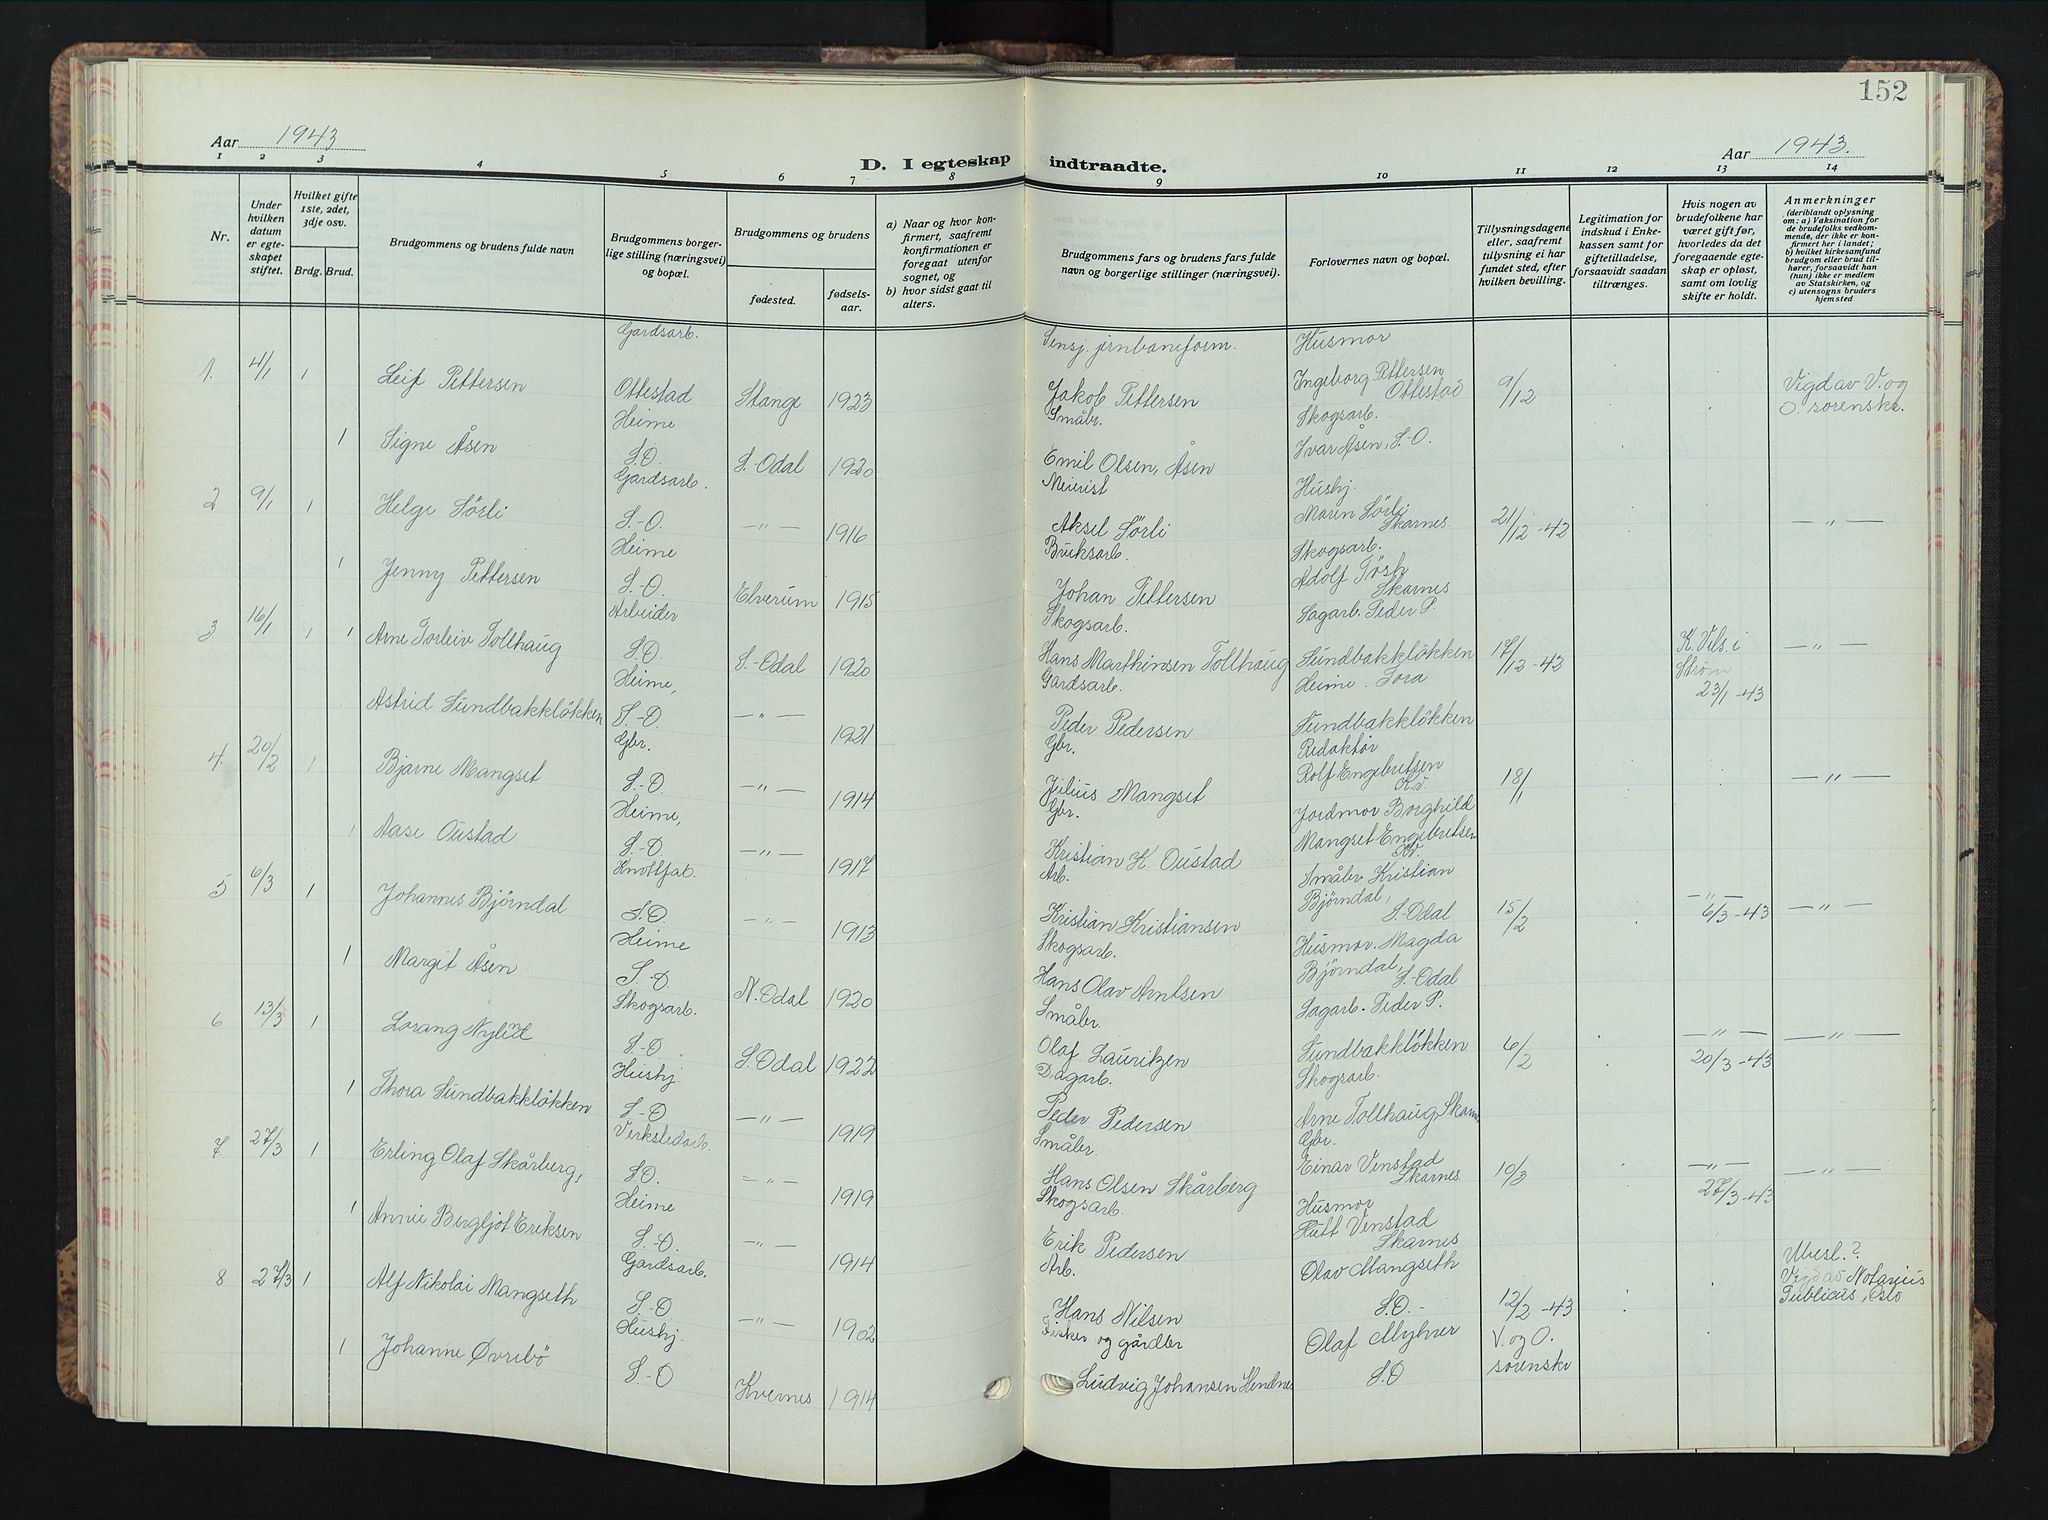 152
Aar 1943
Aar 1943.
D. I egteskap indtraadte.
1 2 3 4 5 6 7 8 9 10 11 12 13 14
Nr.
Under hvilken datum er egteskapet stiftet.
Hvilket gifte 1ste, 2det, 3dje osv.
Brdg. Brud.
Brudgommens og brudens fulde navn
Brudgommens borgerlige stilling (næringsvei) og bopæl.
Brudgommens og brudens
fødested.
fødselsaar.
a) Naar og hvor konfirmert, saafremt konfirmationen er foregaat utenfor sognet, og
b) hvor sidst gaat til alters.
Brudgommens fars og brudens fars fulde navn og borgerlige stillinger (næringsvei).
Forlovernes navn og bopæl.
Tillysningsdagene eller, saafremt tillysning ei har fundet sted, efter hvilken bevilling.
Legitimation for indskud i Enkekassen samt for giftetilladelse, forsaavidt saadan tiltrænges.
Hvis nogen av brudefolkene har været gift før, hvorledes da det foregaaende egteskap er opløst, samt om lovlig skifte er holdt.
Anmerkninger (deriblandt oplysning om: a) Vaksination for de brudefolks vedkommende, der ikke er konfirmert her i landet; b) hvilket kirkesamfund brudgom eller brud tilhører, forsaavidt han (hun) ikke er medlem av Statskirken, og c) utensogns bruders hjemsted
Gardsarb. Pensj. jernbaneform. Husmor
1. 4/1 1 Leif Pettersen Ottestad Stange 1923 Jakob Pettersen Ingeborg Pettersen Ottestad 9/12 Vigd av V. og O. sorenskr.
Heime Småbr. Skogsarb.
1 Signe Åsen S.O. S.-Odal 1920 Emil Olsen, Åsen Ivar Åsen, S.-O.
Gardsarb. Meierist Hushj.
2 9/1 1 Helge Sörli S.-O. —"— 1916 Aksel Sörli Maren Sörli Skarnes 21/12-42 —"—
Heime Bruksarb. Skogsarb.
1 Jenny Pettersen S.-O. Elverum 1915 Johan Pettersen Adolf Skarnes
Arbeider Skogsarb. Sagarb. Peder P.
3 16/1 1 1 Arne Torleiv Tollhaug S.O. S.-Odal 1920 Hans Marthinsen Tollhaug Sundbakkløkken 17/12-42 K. Vils. i Strøm 23/1-43 —"—
Heime, Gardsarb. Heime. Tora
Astrid Sundbakkløkken S.-O —"— 1921 Peder Pedersen Sundbakkløkken
Gbr. Gbr. Redaktør
4. 20/2 1 Bjarne Mangset S.-O. —"— 1914 Julius Mangset Rolf Engebretsen K.v. 18/1 —"—
Heime, Gbr. Jordmor Borghild
1 Aase Oustad S.-O —"— 1917 Kristian K. Oustad Mangset Engebretsen Kv.
Knottfab. Arb. Småbr. Kristian
5 6/3 1 Johannes Bjørndal S.O. —"— 1913 Kristian Kristiansen Bjørndal, S.-Odal 15/2 —"— 6/3-43 —"—
Heime Skogsarb. Husmor. Magda
1 Margit Åsen S.-O N. Odal 1920 Hans Olav Arntsen Bjørndal, S.-Odal
Skogsarb. Småbr. Sagarb. Peder P.
6 13/3 1 Lorang Nylend S.-O. S. Odal 1922 Olaf Lauritzen Sundbakkløkken 6/2 —"— 20/3-43 —"—
Hushj Dagarb. Skogsarb.
1 Thora Sundbakkløkken S.-O —"— 1919 Peder Pedersen Arne Tollhaug, Skarnes
Verkstedarb. Småbr. Gbr.
7 27/3 1 Erling Olaf Skårberg, S.O. —"— 1919 Hans Olsen Skårberg Einar Venstad Skarnes 10/3 —"— 27/3-43 —"—
Heime Skogsarb. Husmor
1 Annie Bergljot Eriksen S.-O. —"— 1914 Erik Pedersen Rutt Venstad Skarnes
Gardsarb. Arb.
8 27/3 1 Alf Nikolai Mangseth S.-O —"— 1902 Hans Nilsen Olav Mangseth S.O.- 12/2-43 V. og O. sorenskr Ubesl.? Vigd av Notarius Publicus, Oslo
Hushj. Fisker og gårdbr
1 Johanne Øvrebö S.-O Kvernes 1914 Ludvig Johansen Hendnes Olaf Myhrer S.O